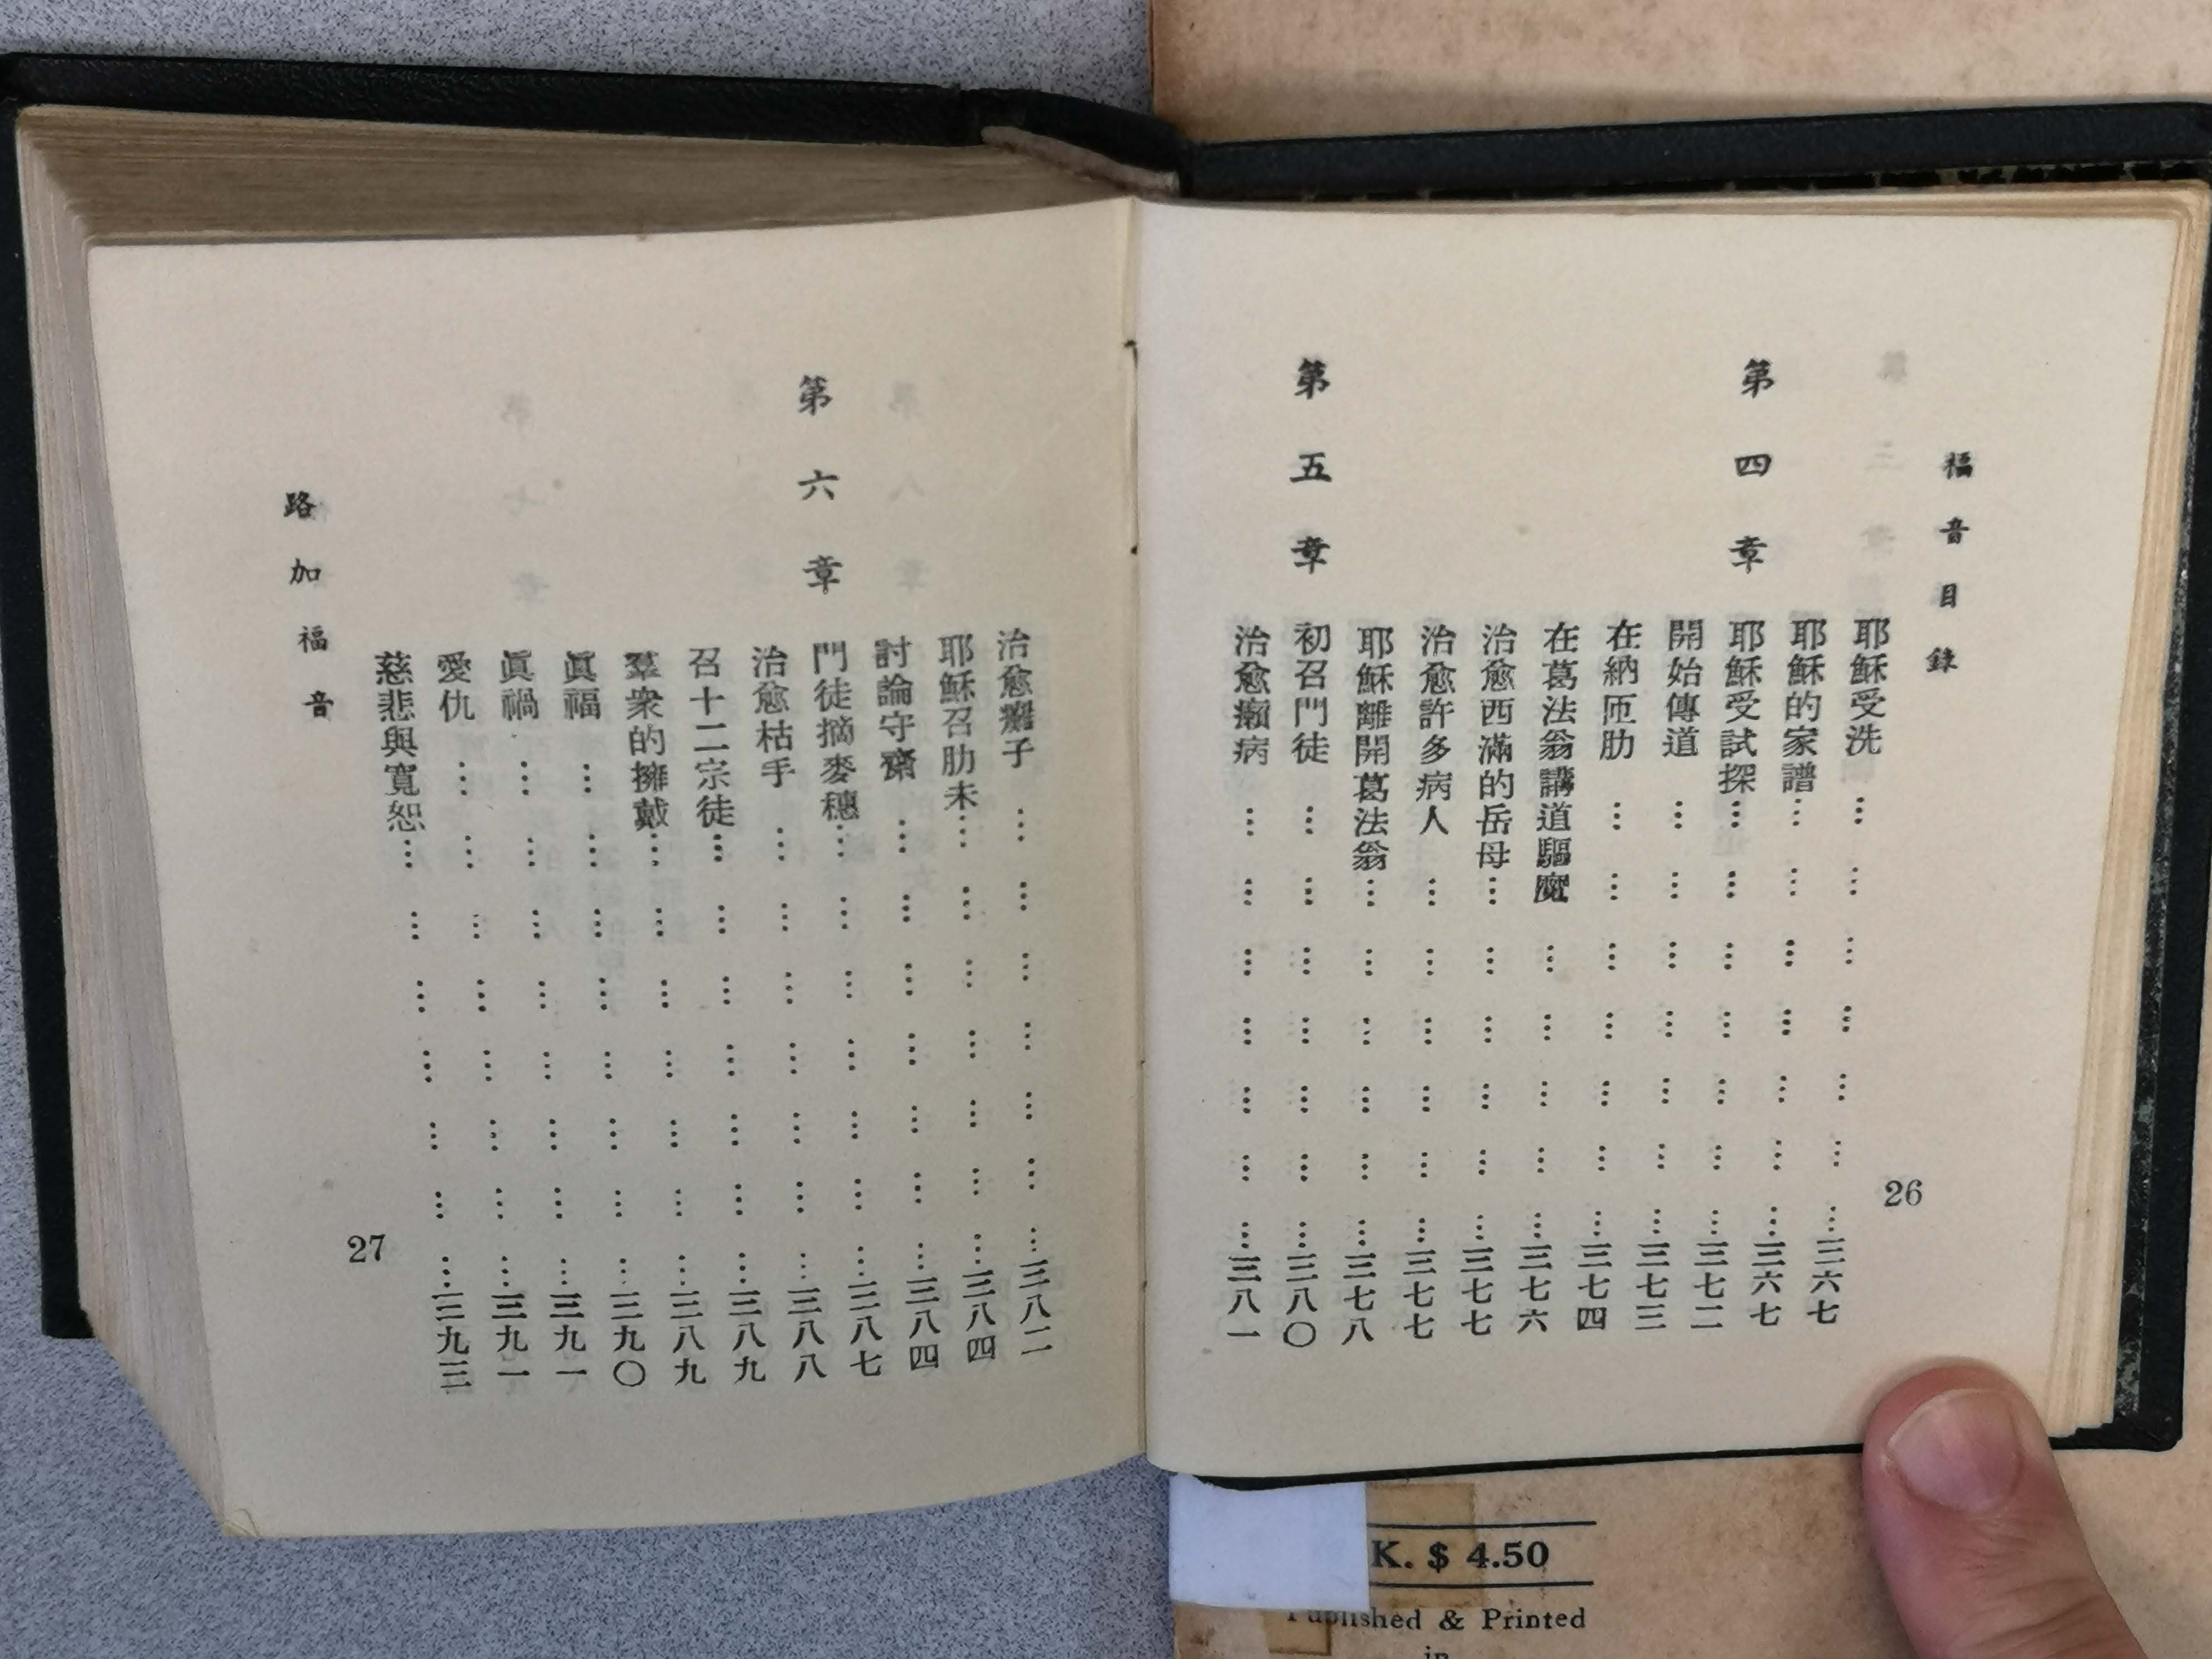 福音目錄
26
耶穌受洗…………………三六七
耶穌的家譜…………………三六七
第四章 耶穌受試探…………………三七二
開始傳道…………………三七三
在納匝肋…………………三七四
在葛法翁講道驅魔……………三七六
治愈西滿的岳母………………三七七
治愈許多病人………………三七七
耶穌離開葛法翁………………三七八
第五章 初召門徒…………………三八〇
治愈癩病…………………三八一
治愈癱子…………………三八二
耶穌召肋未…………………三八四
討論守齋…………………三八四
第六章 門徒摘麥穗…………………三八七
治愈枯手…………………三八八
召十二宗徒…………………三八九
羣衆的擁戴…………………三八九
眞福…………………三九〇
眞禍…………………三九一
愛仇…………………三九一
慈悲與寬恕…………………三九三
路加福音
27
K. $ 4.50
Published & Printed
in